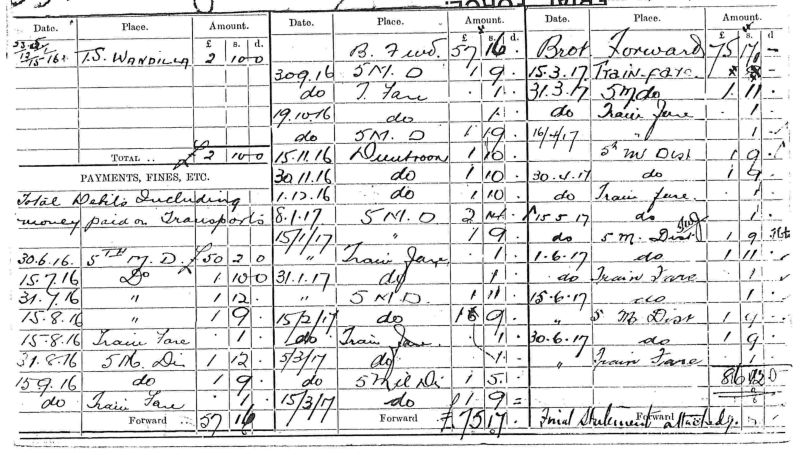 Date. Place. Amount.
£ s. d.
T.S. WANDILLA 2 10 0
TOTAL .. £2 10 0
PAYMENTS, FINES, ETC.
Total Debits Including
money paid on Transports
30.6.16. 5TH M.D. £50 2 0
15.7.16 Do 1 10 0
31.7.16 " 1 12 .
15.8.16 " 1 9 .
15.8.16 Train Fare . 1 .
31.8.16 5 M. Di 1 12 .
15.9.16 do 1 9 .
do Train Fare . 1 .
Forward 57 16
Date. Place. Amount.
£ s. d.
B. Fwd. 57 16
30.9.16 5 M. D 1 9 .
do T. Fare . 1 .
19.10.16 do 1 .
do 5 M. D 1 19 .
15.11.16 Duntroon 1 10 .
30.11.16 do 1 10 .
1.12.16 do 1 10 .
8.1.17 5 M. D 2
15/1/17 " 1 9 .
" Train Fare . 1 .
31.1.17 do . 1 .
" 5 M.D. 1 11 .
15/2/17 do 9 .
do Train Fare . 1 .
5/3/17 do 1 .
do 5 Mil Di 1 5 .
15/3/17 do 1 9 =
Forward £75 17 .
Date. Place. Amount.
£ s. d.
Brot. Forward 75 17 .
15.3.17 Train fare
31.3.17 5 M do 1 11 .
do Train Fare . 1 .
16/4/17 " . 1 .
5th M Dist 1 9 .
30.4.17 do 1 9 .
do Train fare . 1 .
15.5.17 do 1 .
do 5 M. Dist 1 9
1.6.17 do 1 11 .
do Train Fare . 1 .
15.6.17 do . 1 .
" 5 M Dist 1 9 .
30.6.17 do 1 9 .
" Train Fare . 1 .
Forward
Final Statement attached.